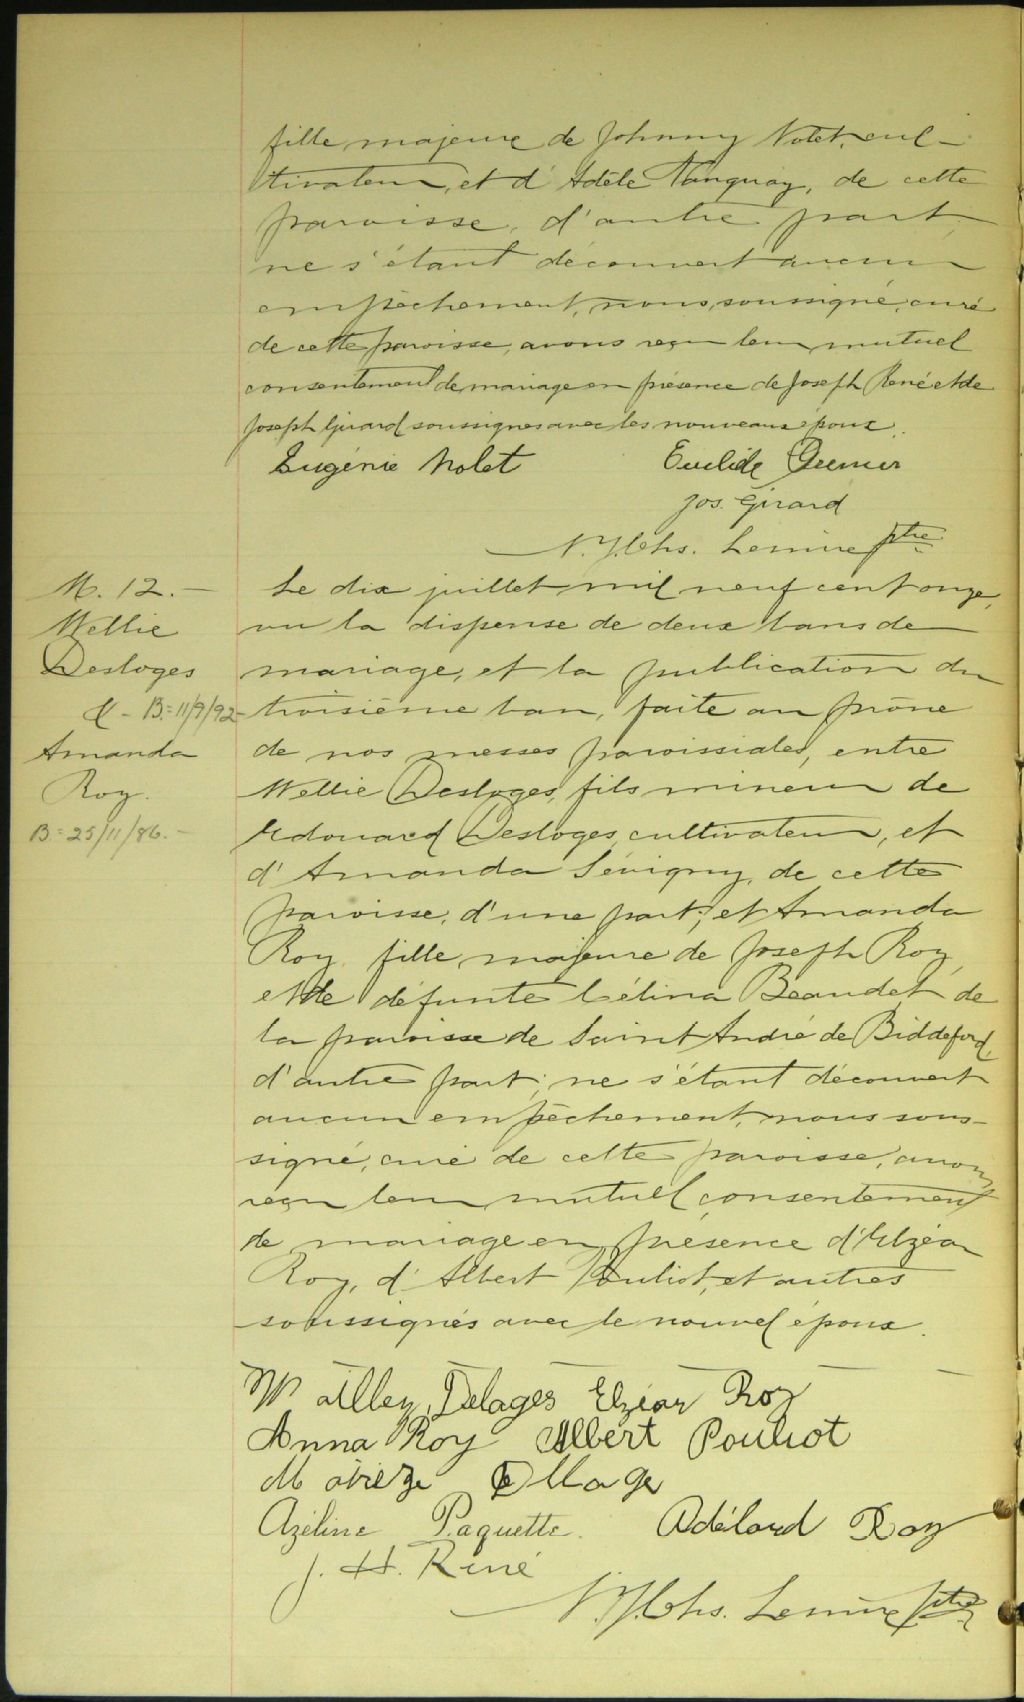 fille majeure de Johnny Nolet, cul-
tivateur, et d'Adèle Tanguay, de cette
paroisse, d'autre part
ne s'étant découvert aucun
empêchement, nous, soussigné, curé
de cette paroisse, avons reçu leur mutuel
consentement de mariage en présence de Joseph René et de
Joseph Girard soussignés avec les nouveaux époux.
Eugénie Nolet Euclide Grenier
Jos. Girard
Chs. Lemire ptre
M. 12.-
Wellie
Desloges
& - B.= 11/9/92-
Amanda
Roy.
B= 25/11/86.-
Le dix juillet mil neuf cent onze,
vu la dispense de deux bans de
mariage, et la publication du
troisième ban, faite au prône
de nos messes paroissiales, entre
Wellie Desloges, fils mineur de
Edouard Desloges, cultivateur, et
d'Amanda Sévigny, de cette
paroisse, d'une part; et Amanda
Roy, fille majeure de Joseph Roy,
et de défunte Célina Beaudet de
la paroisse de Saint André de Biddeford,
d'autre part; ne s'étant découvert
aucun empêchement, nous sous-
signé, curé de cette paroisse, avons
reçu leur mutuel consentement
de mariage en présence d'Elzéar
Roy, d'Albert Pouliot, et autres
soussignés avec le nouvel époux.
Delages Elzéar Roy
Anna Roy Albert Pouliot
Azéline Paquette. Adélard Roy
J. H. René
Chs. Lemire ptre